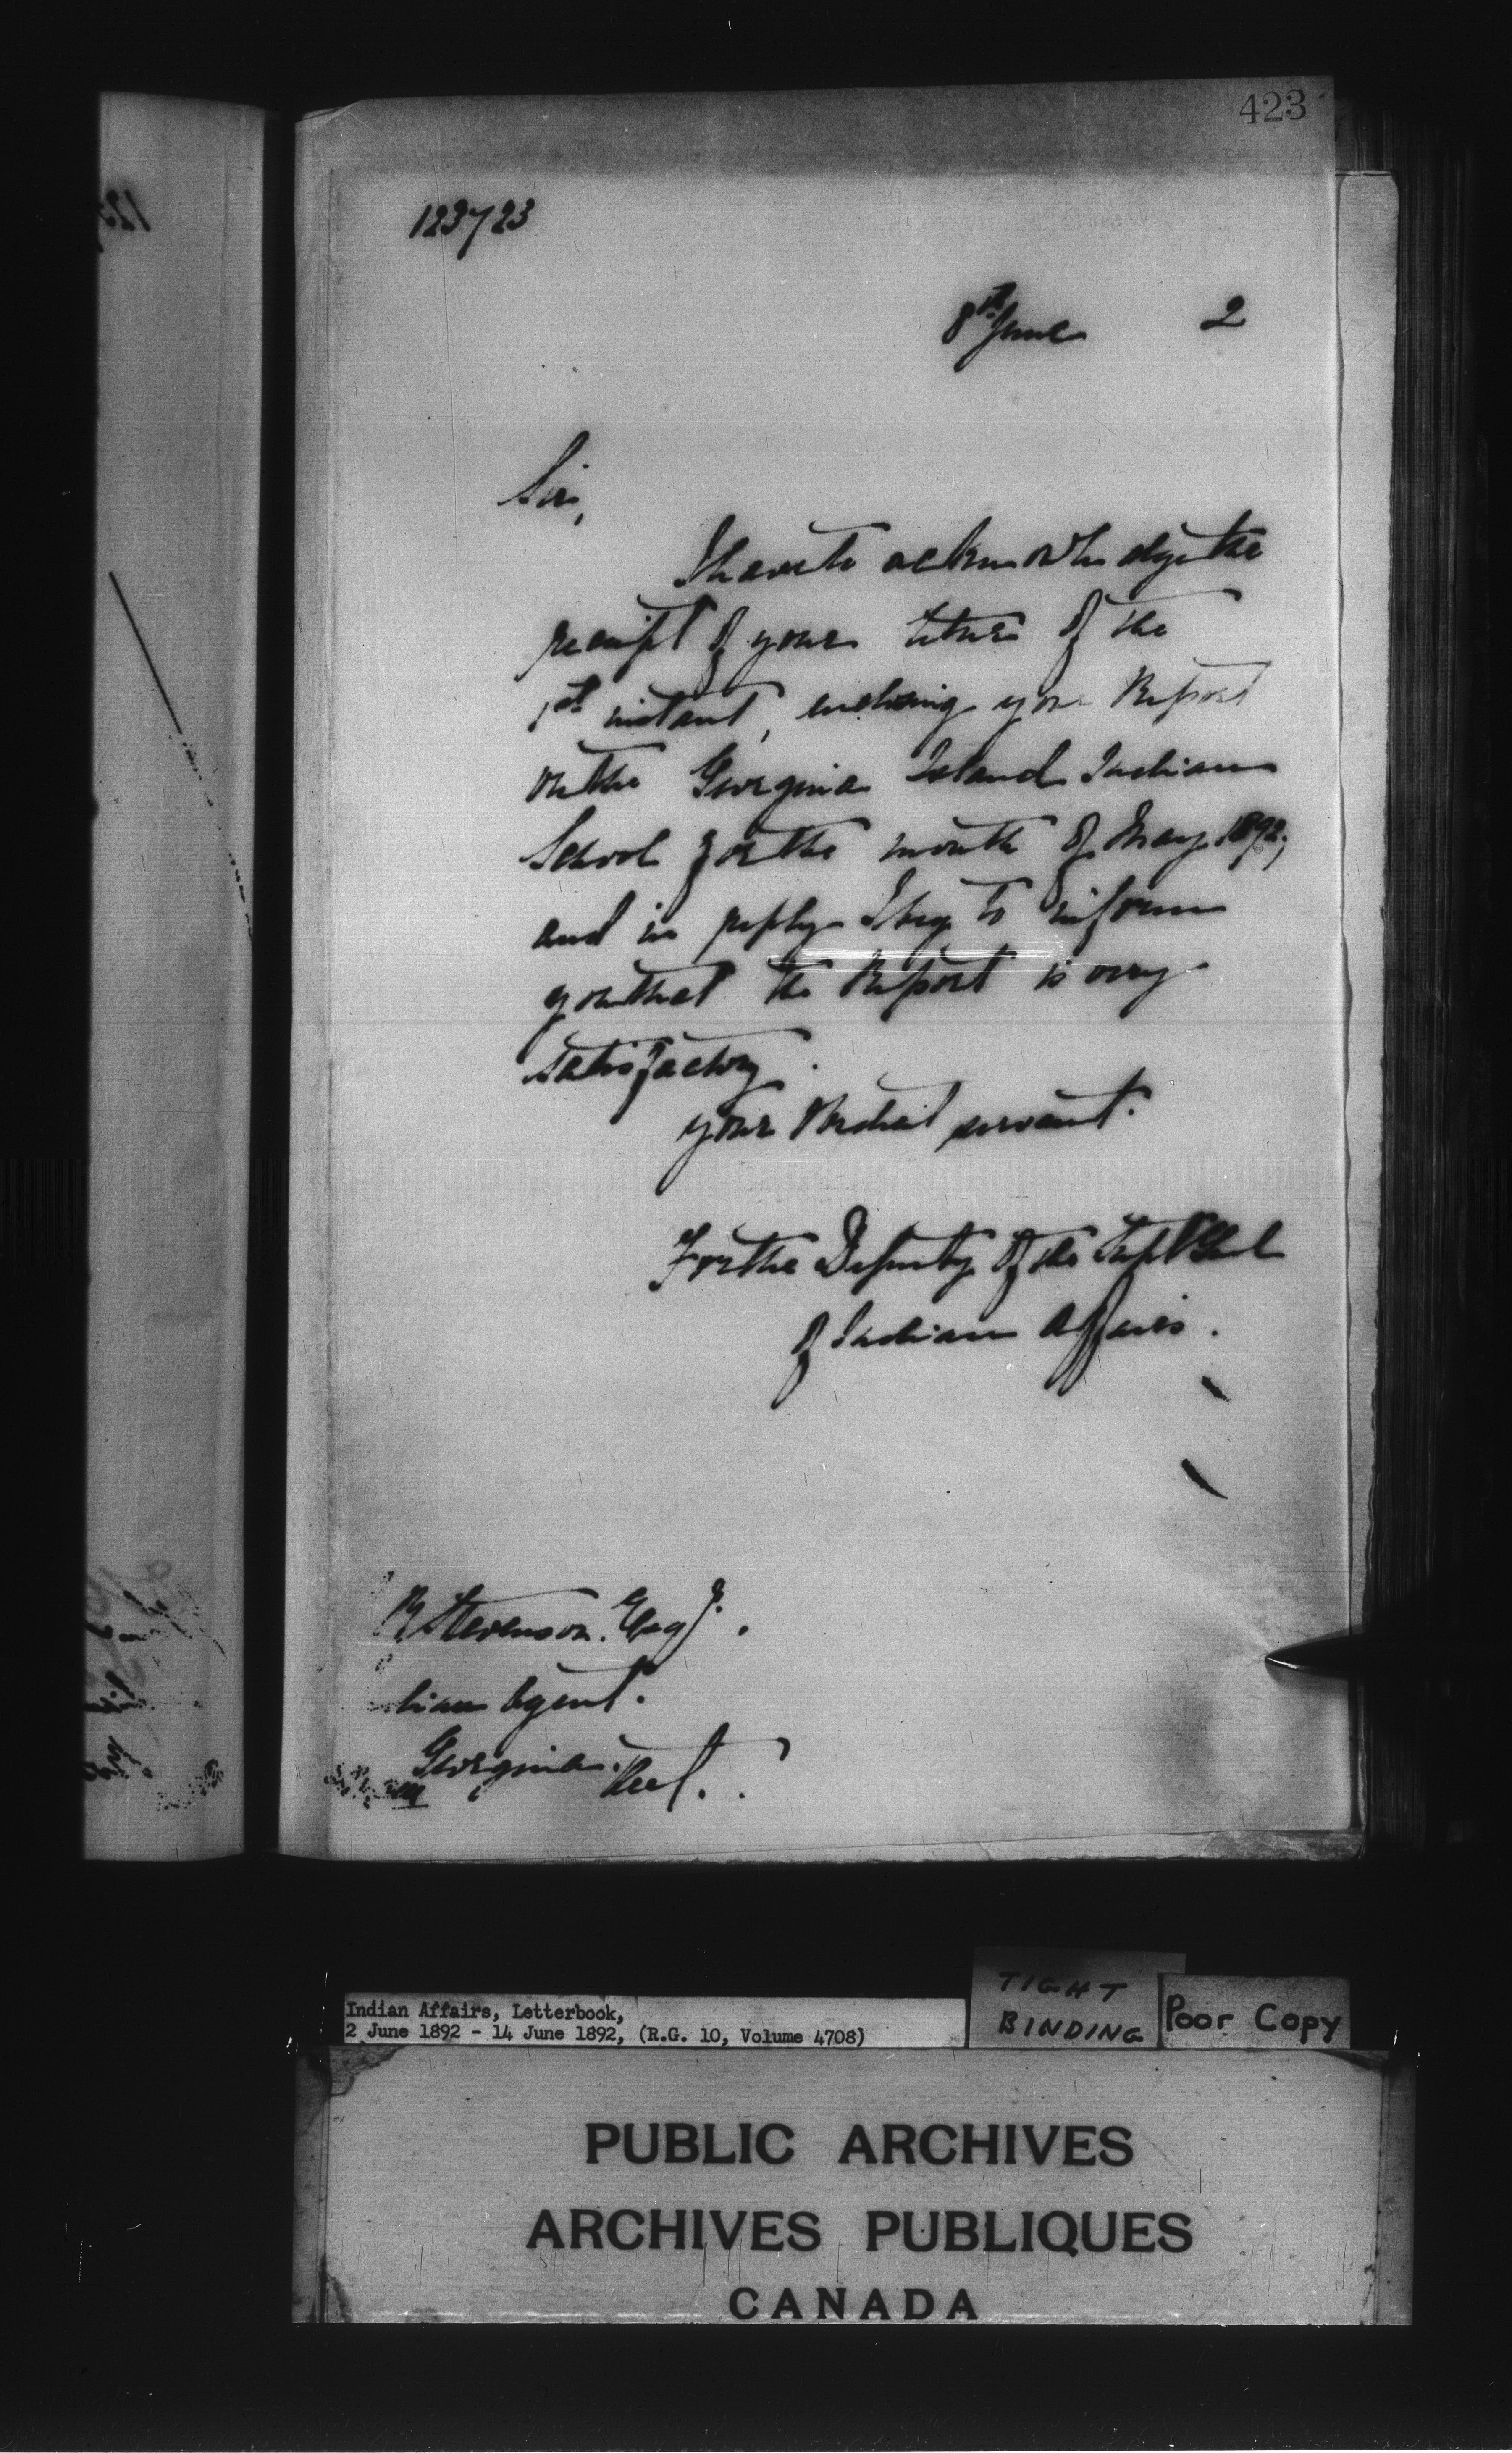 423
123723
8th June 2
Sir,
I have to acknowledge the
receipt of your letter of the
1st instant, enclosing your Report
on the Georgina Island Indian
School for the month of May 1892;
and in reply I beg to inform
you that the Report is very
satisfactory.
Your obedient servant.
For the Deputy of the Supt Genl
of Indian Affairs.
R Stevenson. Esqr.
dian Agent.
Georgina.
Indian Affairs, Letterbook,
2 June 1892 - 14 June 1892, (R.G. 10, Volume 4708)
TIGHT
BINDING
Poor Copy
PUBLIC ARCHIVES
ARCHIVES PUBLIQUES
CANADA